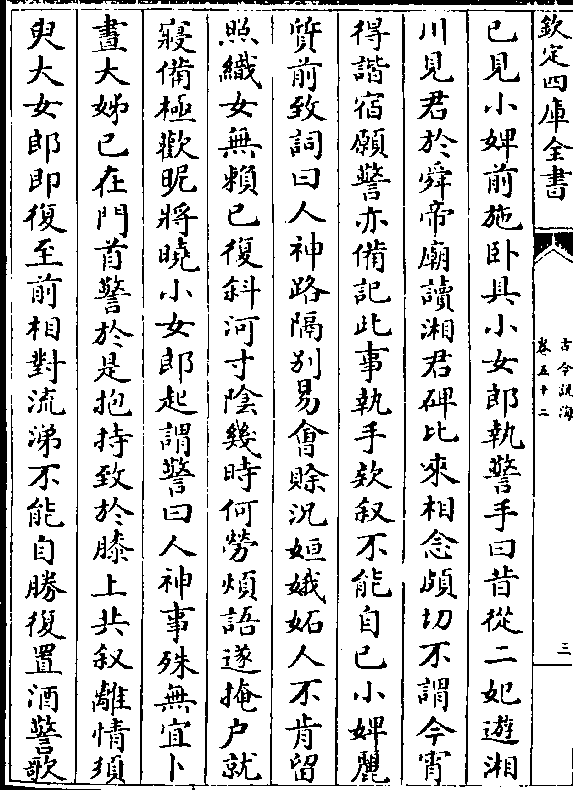 欽定四庫全書
古今說海
卷五十二
三
已見小婢前施卧具小女郎執警手曰昔從二妃遊湘
川見君於舜帝廟讀湘君碑比來相念頗切不謂今宵
得諧宿願警亦備記此事執手欵叙不能自已小婢麗
質前致詞曰人神路隔别易會賒況姮娥妬人不肯留
照織女無賴已復斜河寸陰幾時何勞煩語遂掩户就
寢備極歡昵將曉小女郎起謂警曰人神事殊無宜卜
晝大姊已在門首警於是抱持致於膝上共叙離情須
臾大女郎即復至前相對流涕不能自勝復置酒警歌